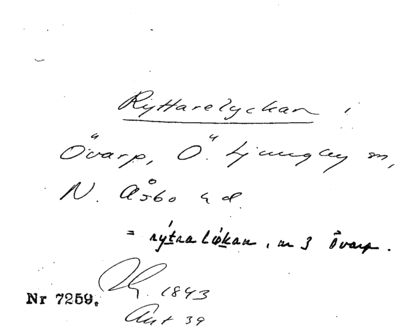 Ryttarelyckan i
Övarp, Ö. Ljungby sn,
N. Åsbo hd.
= rýtra lýkan, nr 3 Övarp.
1843
Nr 7259.
Ant 39